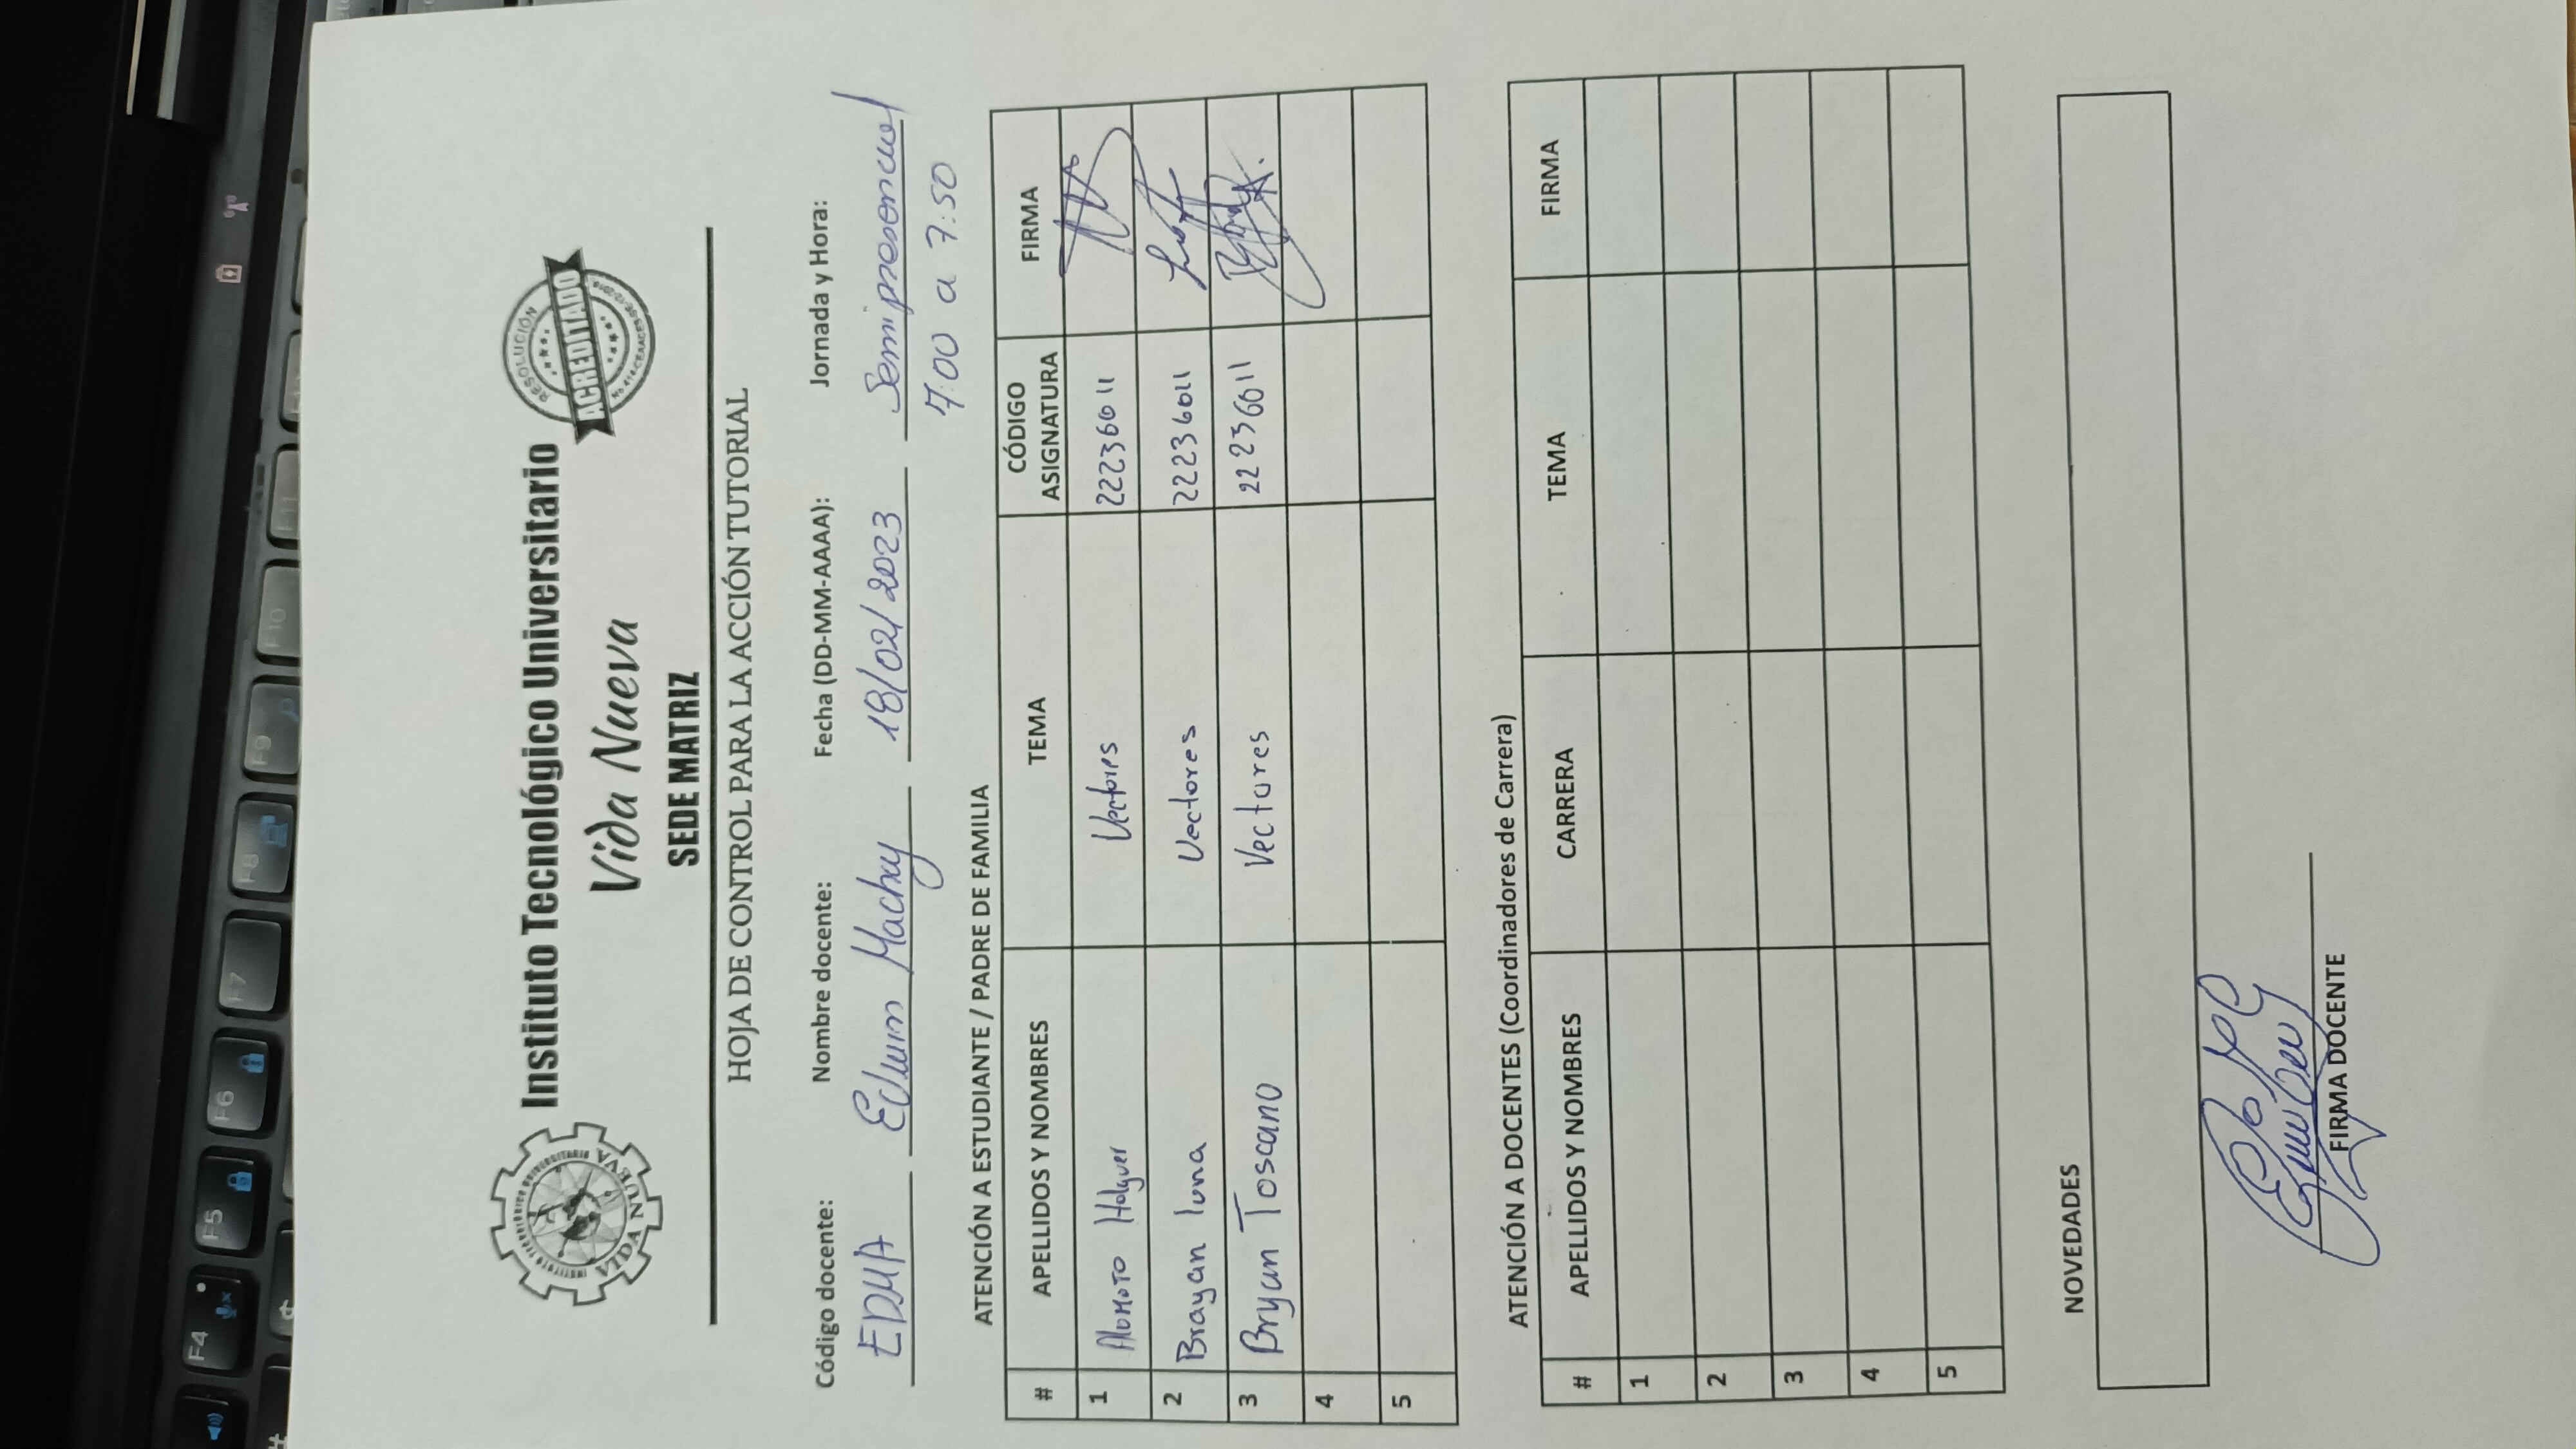 F4 F5 F6 F7 F8 F9 F10 F11
INSTITUTO TECNOLÓGICO UNIVERSITARIO
VIDA NUEVA
Instituto Tecnológico Universitario
Vida Nueva
SEDE MATRIZ
RESOLUCIÓN
ACREDITADO
HOJA DE CONTROL PARA LA ACCIÓN TUTORIAL
Código docente: Nombre docente: Fecha (DD-MM-AAAA): Jornada y Hora:
EDMA Edwin Machay 18/02/2023 Semipresencial
7:00 a 7:50
ATENCIÓN A ESTUDIANTE / PADRE DE FAMILIA
# APELLIDOS Y NOMBRES TEMA CÓDIGO ASIGNATURA FIRMA
1 Alomoto Holguer Vectores 22236011
2 Brayan luna Vectores 22236011
3 Bryan Toscano Vectores 22236011
4
5
ATENCIÓN A DOCENTES (Coordinadores de Carrera)
# APELLIDOS Y NOMBRES CARRERA TEMA FIRMA
1
2
3
4
5
NOVEDADES
FIRMA DOCENTE